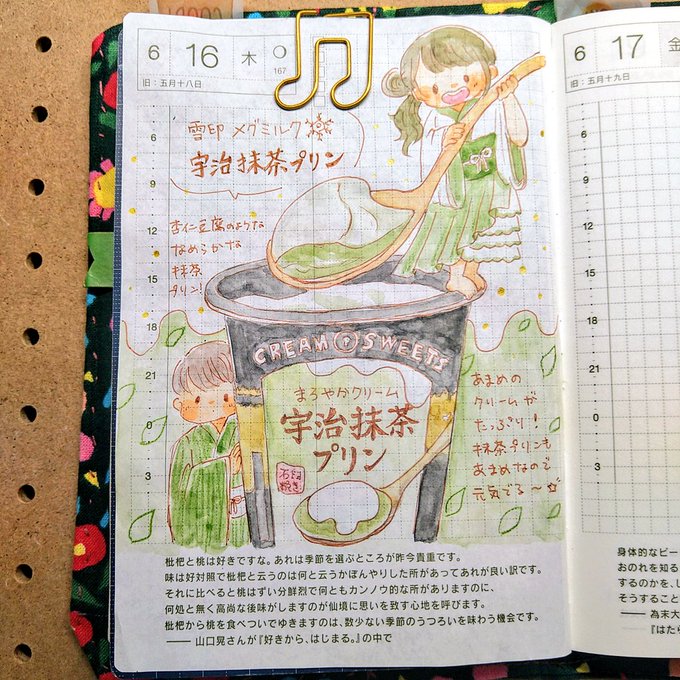 6 16 木
167
旧：五月十八日
雪印 メグミルク
宇治抹茶プリン
杏仁豆腐のような
なめらかな
抹茶
プリン！
6
9
12
15
18
21
0
3
CREAM SWEETS
まろやかクリーム
宇治抹茶
プリン
石臼
挽き
あまめの
クリームが
たっぷり！
抹茶プリンも
あまめなので
元気でる〜
枇杷と桃は好きですな。あれは季節を選ぶところが昨今貴重です。
味は好対照で枇杷と云うのは何と云うかぼんやりした所があってあれが良い訳です。
それに比べると桃はずい分鮮烈で何ともカンノウ的な所がありますのに、
何処と無く高尚な後味がしますのが仙境に思いを致す心地を呼びます。
枇杷から桃を食べついでゆきますのは、数少ない季節のうつろいを味わう機会です。
── 山口晃さんが『好きから、はじまる。』の中で
6 17 金
旧：五月十九日
6
9
12
15
18
21
0
3
身体的なピー
おのれを知る
するのかを、し
そうすること
── 為末大
『はたら